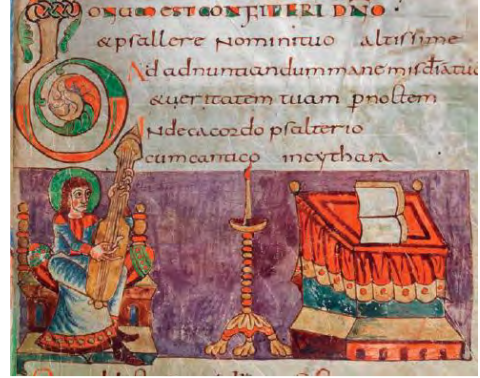 BONUM EST CONFITERI DNO :
& psallere nomini tuo altissime
Ad adnuntiandum mane
& ueritatem tuam p noctem
In decacordo psalterio
cum cantico in cythara